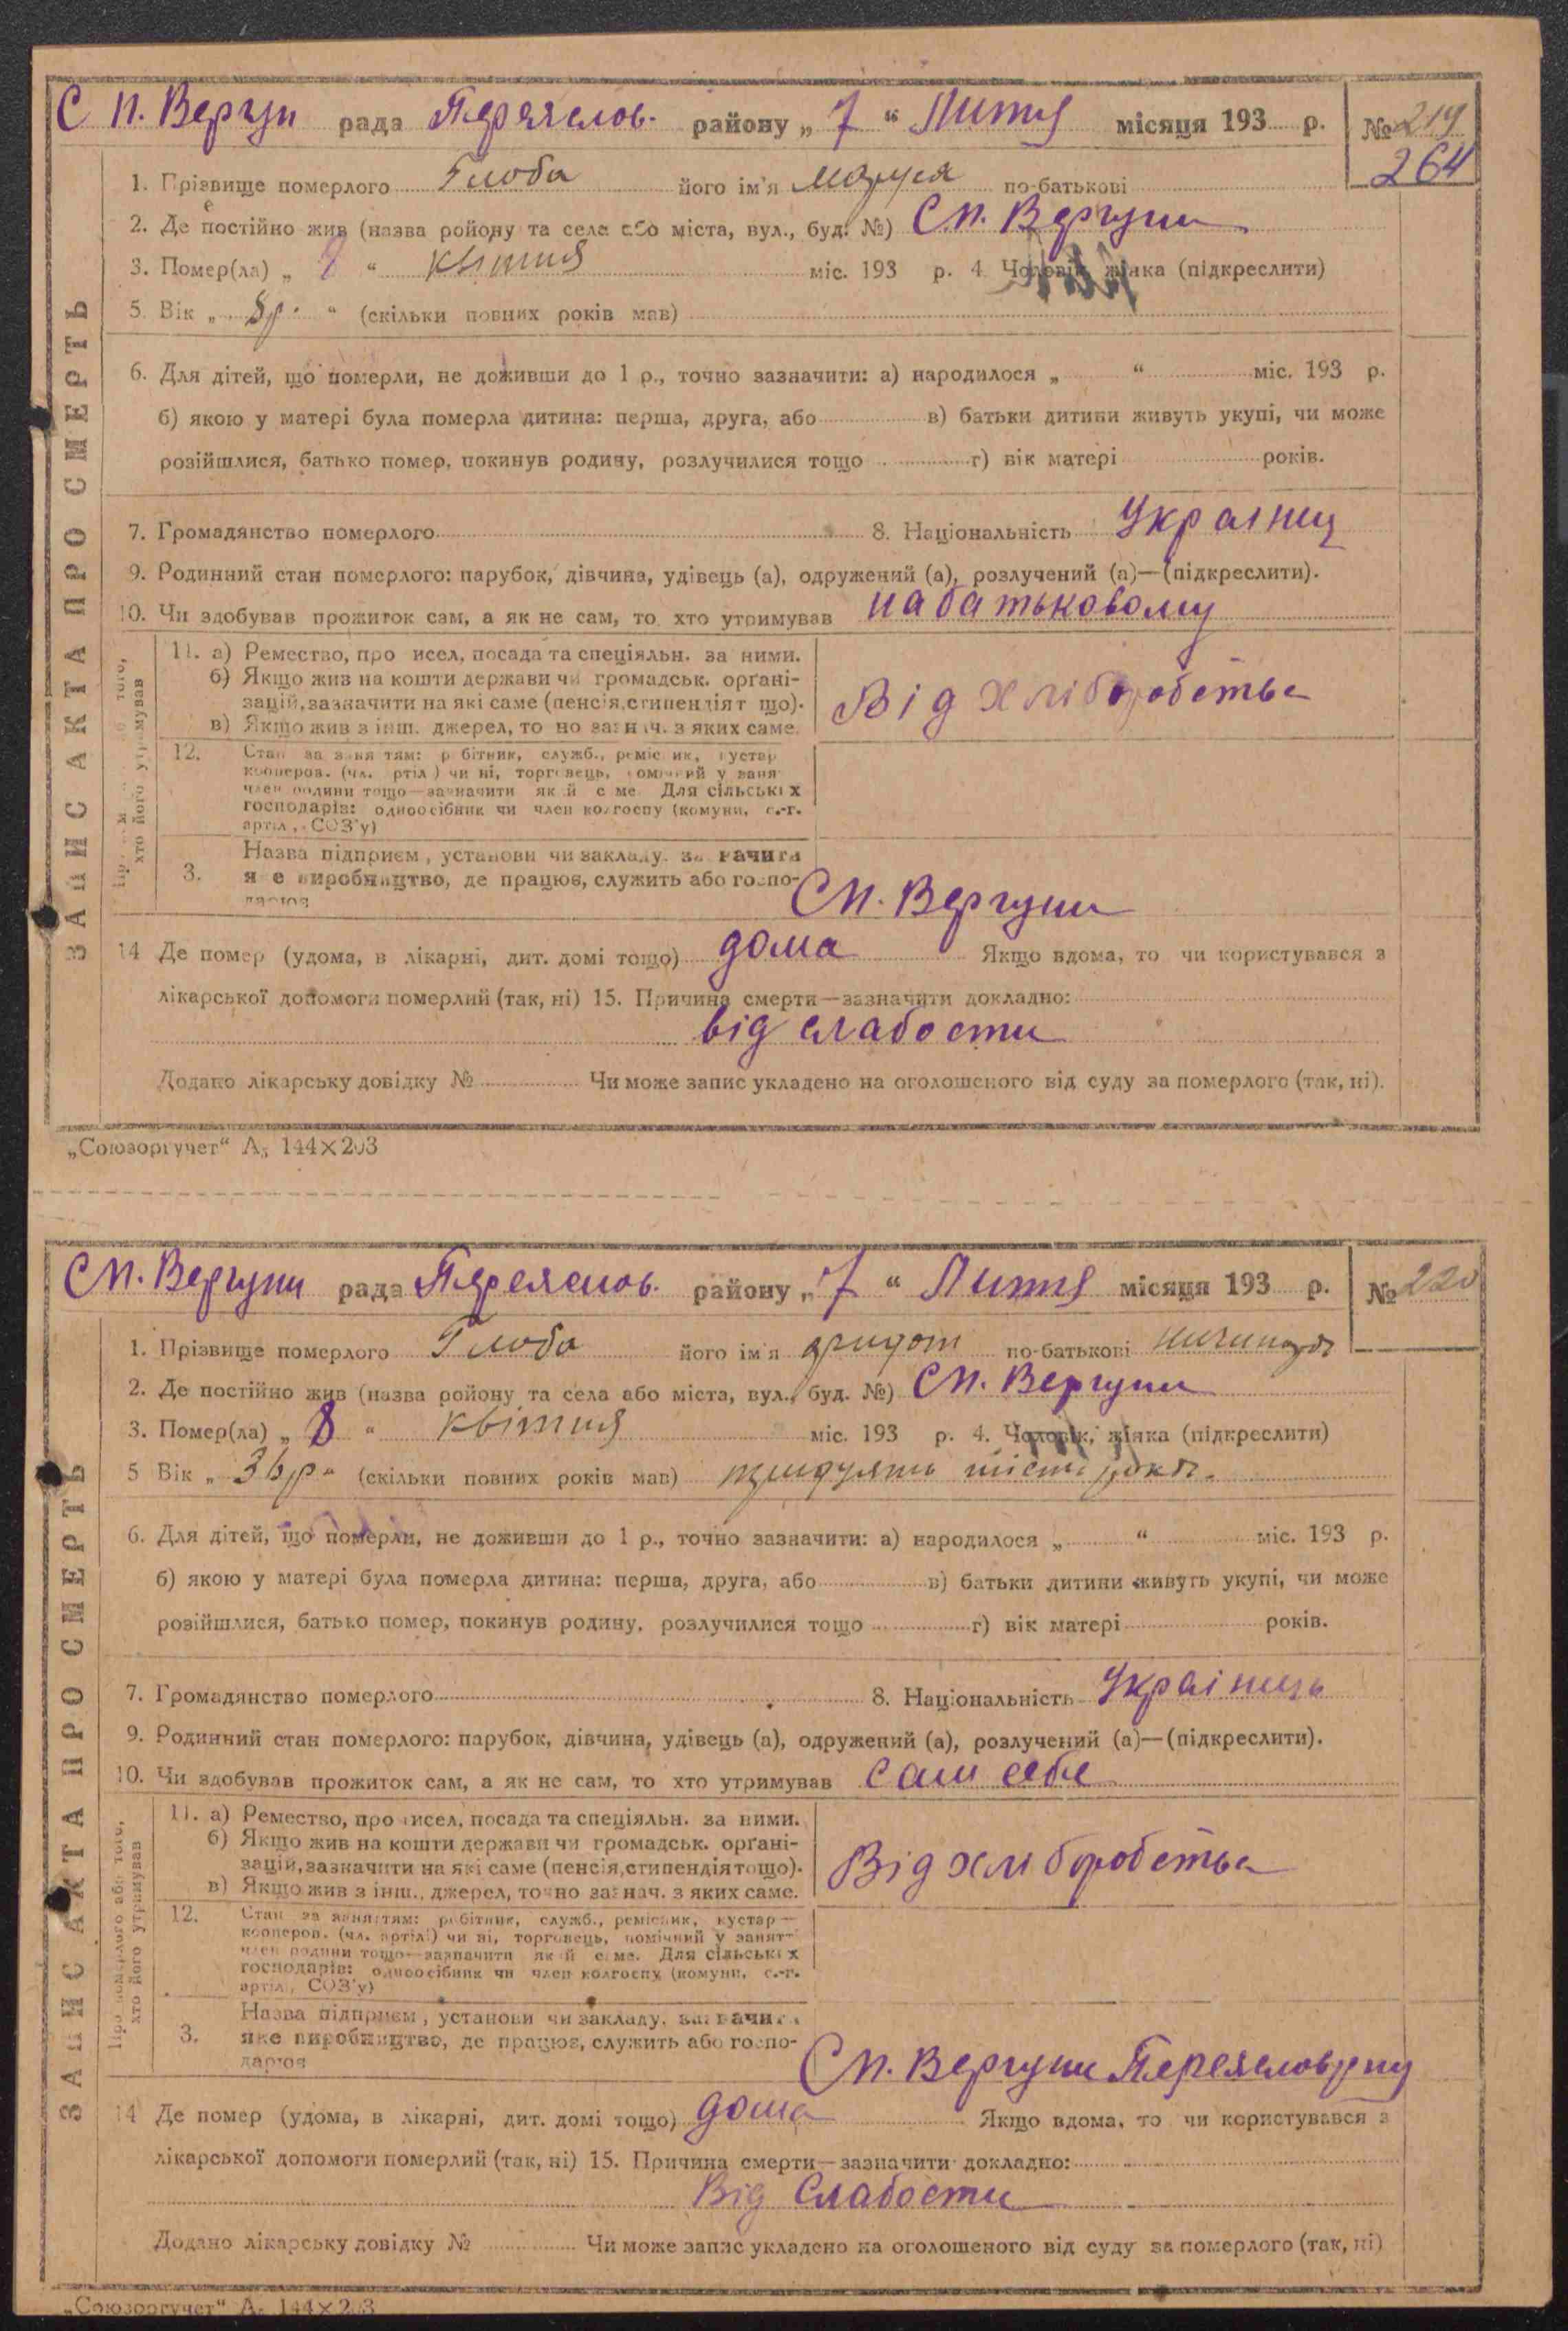 С п. Вергун рада Переяслов. району „ 7 “ Литня місяця 193 р. № 219
264
1. Прізвище померлого Глоба його ім'я Маруся по-батькові
2. Де постійно жив (назва району та села або міста, вул., буд. №) СП. Вергуни
3. Помер(ла) „ 8 “ квітня міс. 193 р. 4. Чоловік, жінка (підкреслити)
5. Вік „ 8р. “ (скільки повних років мав)
6. Для дітей, що померли, не доживши до 1 р., точно зазначити: а) народилося „ “ міс. 193 р.
б) якою у матері була померла дитина: перша, друга, або в) батьки дитини живуть укупі, чи може
розійшлися, батько помер, покинув родину, розлучилися тощо г) вік матері років.
7. Громадянство померлого 8. Національність Украінц
9. Родинний стан померлого: парубок, дівчина, удівець (а), одружений (а), розлучений (а)—(підкреслити).
10. Чи здобував прожиток сам, а як не сам, то хто утримував на батьковому
ЗАПИС АКТА ПРО СМЕРТЬ
хто його утримував
11. а) Ремество, про исел, посада та спеціяльн. за ними.
б) Якщо жив на кошти держави чи громадськ. орґані-
зацій, зазначити на які саме (пенсія, стипендія т що).
в) Якщо жив з інш. джерел, то но зазнач. з яких саме.
Від хліборобства
12. Стан за заня тям: р бітник, служб., реміс ик, кустар
кооперов. (чл. ртіл ) чи ні, торговець, помічний у занят
член родини тощо—зазначити як й с ме. Для сільськ х
господарів: одноосібник чи член колгоспу (комуни, с.-г.
артіл , СОЗ'у)
3. Назва підприєм , установи чи закладу, за начити
я е виробництво, де працює, служить або госпо-
дарює
СП. Вергуни
14 Де помер (удома, в лікарні, дит. домі тощо) дома Якщо вдома, то чи користувався з
лікарської допомоги померлий (так, ні) 15. Причина смерти—зазначити докладно:
від слабости
Додано лікарську довідку № Чи може запис укладено на оголошеного від суду за померлого (так, ні).
„Союзоргучет“ А₅ 144×203
СП. Вергуни рада Переяслов. району „ 7 “ Литня місяця 193 р. № 220
1. Прізвище померлого Глоба його ім'я по-батькові
2. Де постійно жив (назва району та села або міста, вул., буд. №) СП. Вергуни
3. Помер(ла) „ 8 “ квітня міс. 193 р. 4. Чоловік, жінка (підкреслити)
5 Вік „ 36р “ (скільки повних років мав) шість
6. Для дітей, що померли, не доживши до 1 р., точно зазначити: а) народилося „ “ міс. 193 р.
б) якою у матері була померла дитина: перша, друга, або в) батьки дитини живуть укупі, чи може
розійшлися, батько помер, покинув родину, розлучилися тощо г) вік матері років.
7. Громадянство померлого 8. Національність Украінць
9. Родинний стан померлого: парубок, дівчина, удівець (а), одружений (а), розлучений (а)—(підкреслити).
10. Чи здобував прожиток сам, а як не сам, то хто утримував Сам себе
ЗАПИС АКТА ПРО СМЕРТЬ
Про померлого або того,
хто його утримував
11. а) Ремество, про исел, посада та спеціяльн. за ними.
б) Якщо жив на кошти держави чи громадськ. орґані-
зацій, зазначити на які саме (пенсія, стипендія тощо).
в) Якщо жив з інш. джерел, точно зазнач. з яких саме.
Від хліборобства
12. Стан за заняттям: робітник, служб., ремісник, кустар—
кооперов. (чл. артіл) чи ні, торговець, помічний у занят-
член родини тощо—зазначити як й саме. Для сільськ х
господарів: одноосібник чи член колгоспу (комуни, с.-г.
артіл , СОЗ'у)
3. Назва підприєм , установи чи закладу, зазначити
яке виробництво, де працює, служить або госпо-
дарює
СП. Вергуни Переясловрну
14 Де помер (удома, в лікарні, дит. домі тощо) дома Якщо вдома, то чи користувався з
лікарської допомоги померлий (так, ні) 15. Причина смерти—зазначити докладно:
Від Слабости
Додано лікарську довідку № Чи може запис укладено на оголошеного від суду за померлого (так, ні)
„Союзоргучет“ А₅ 144×203